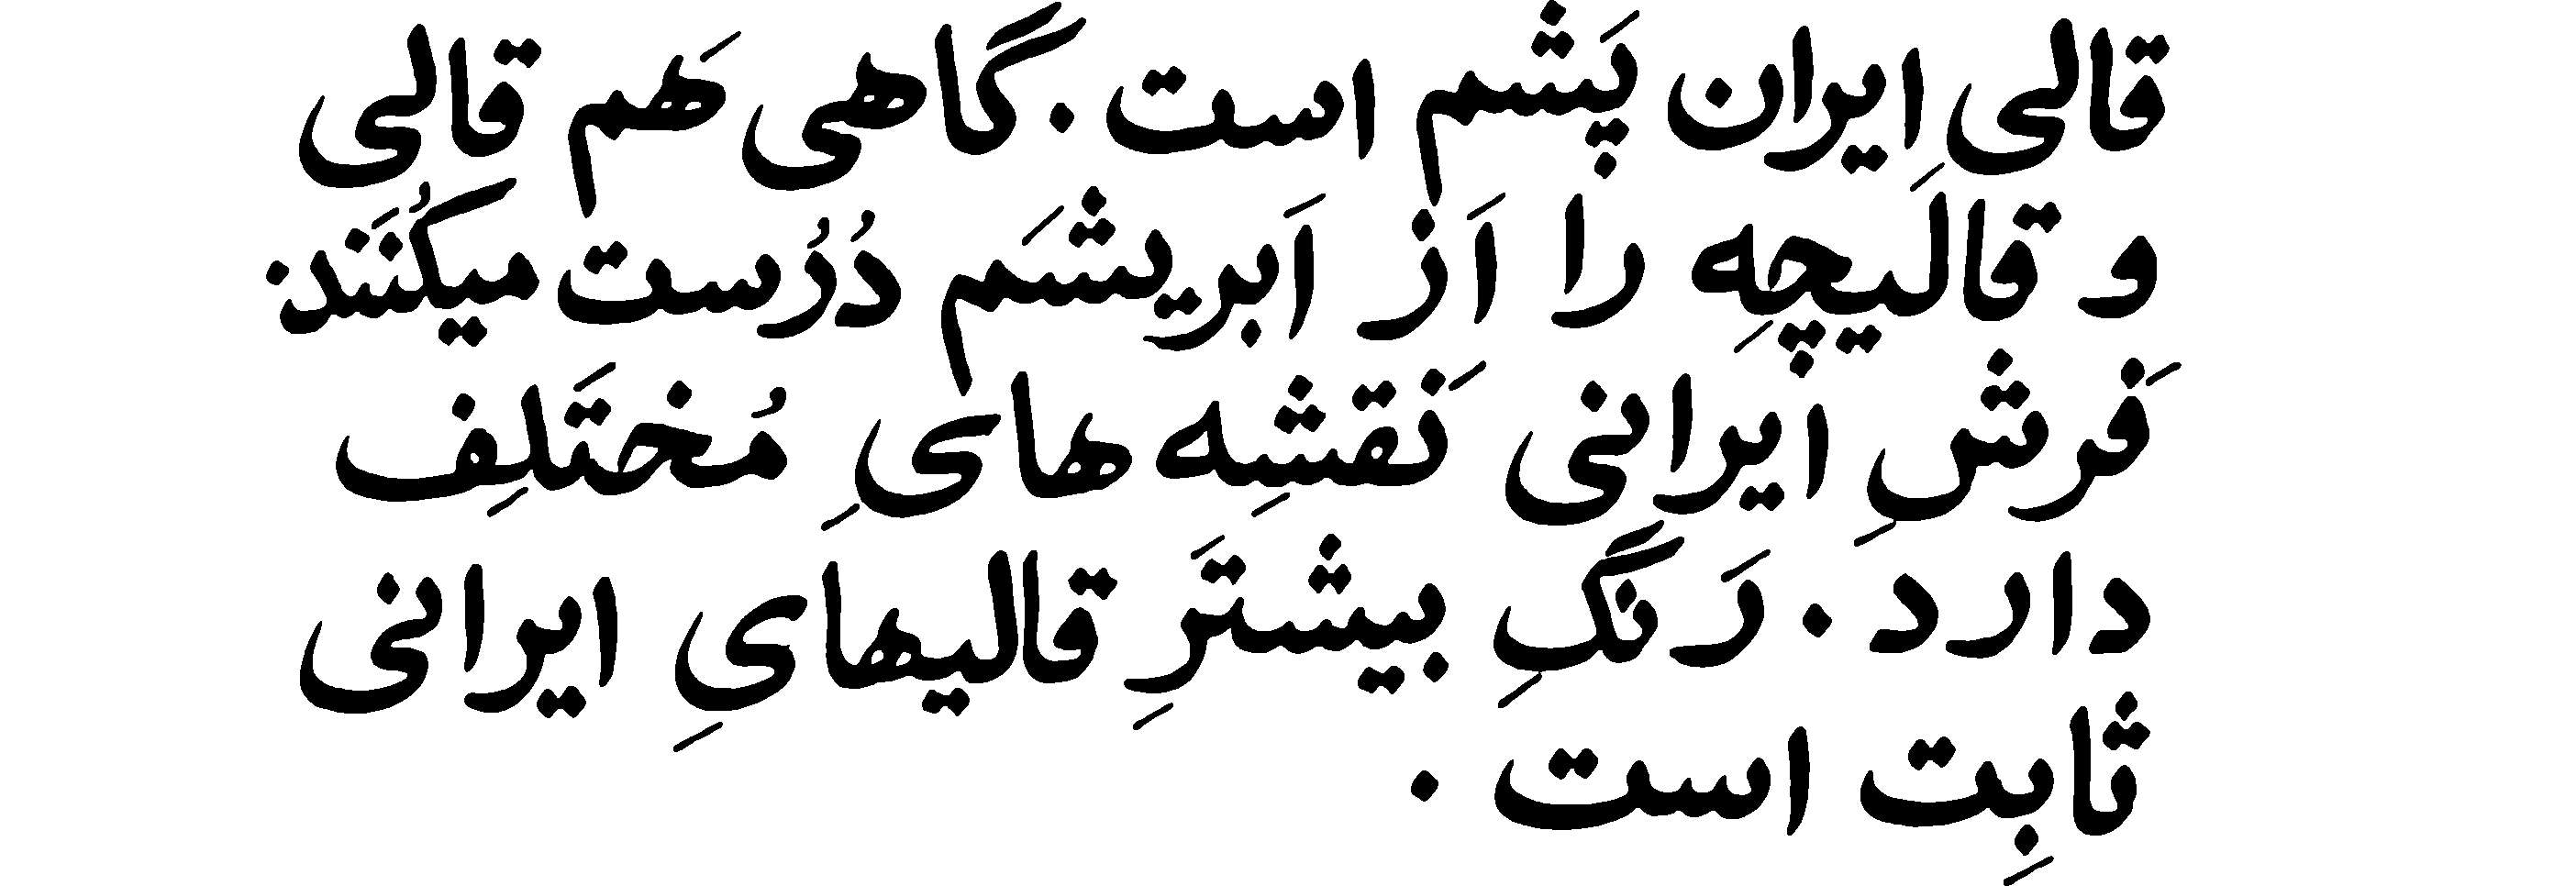 قالی ایران پَشم است. گاهی هَم قالی
و قالیچِه را اَز اَبریشَم دُرُست میکُنَند.
فَرشِ ایرانی نَقشِه هایِ مُختَلِف
دارد. رَنگِ بیشتَرِ قالیهایِ ایرانی
ثابِت است.